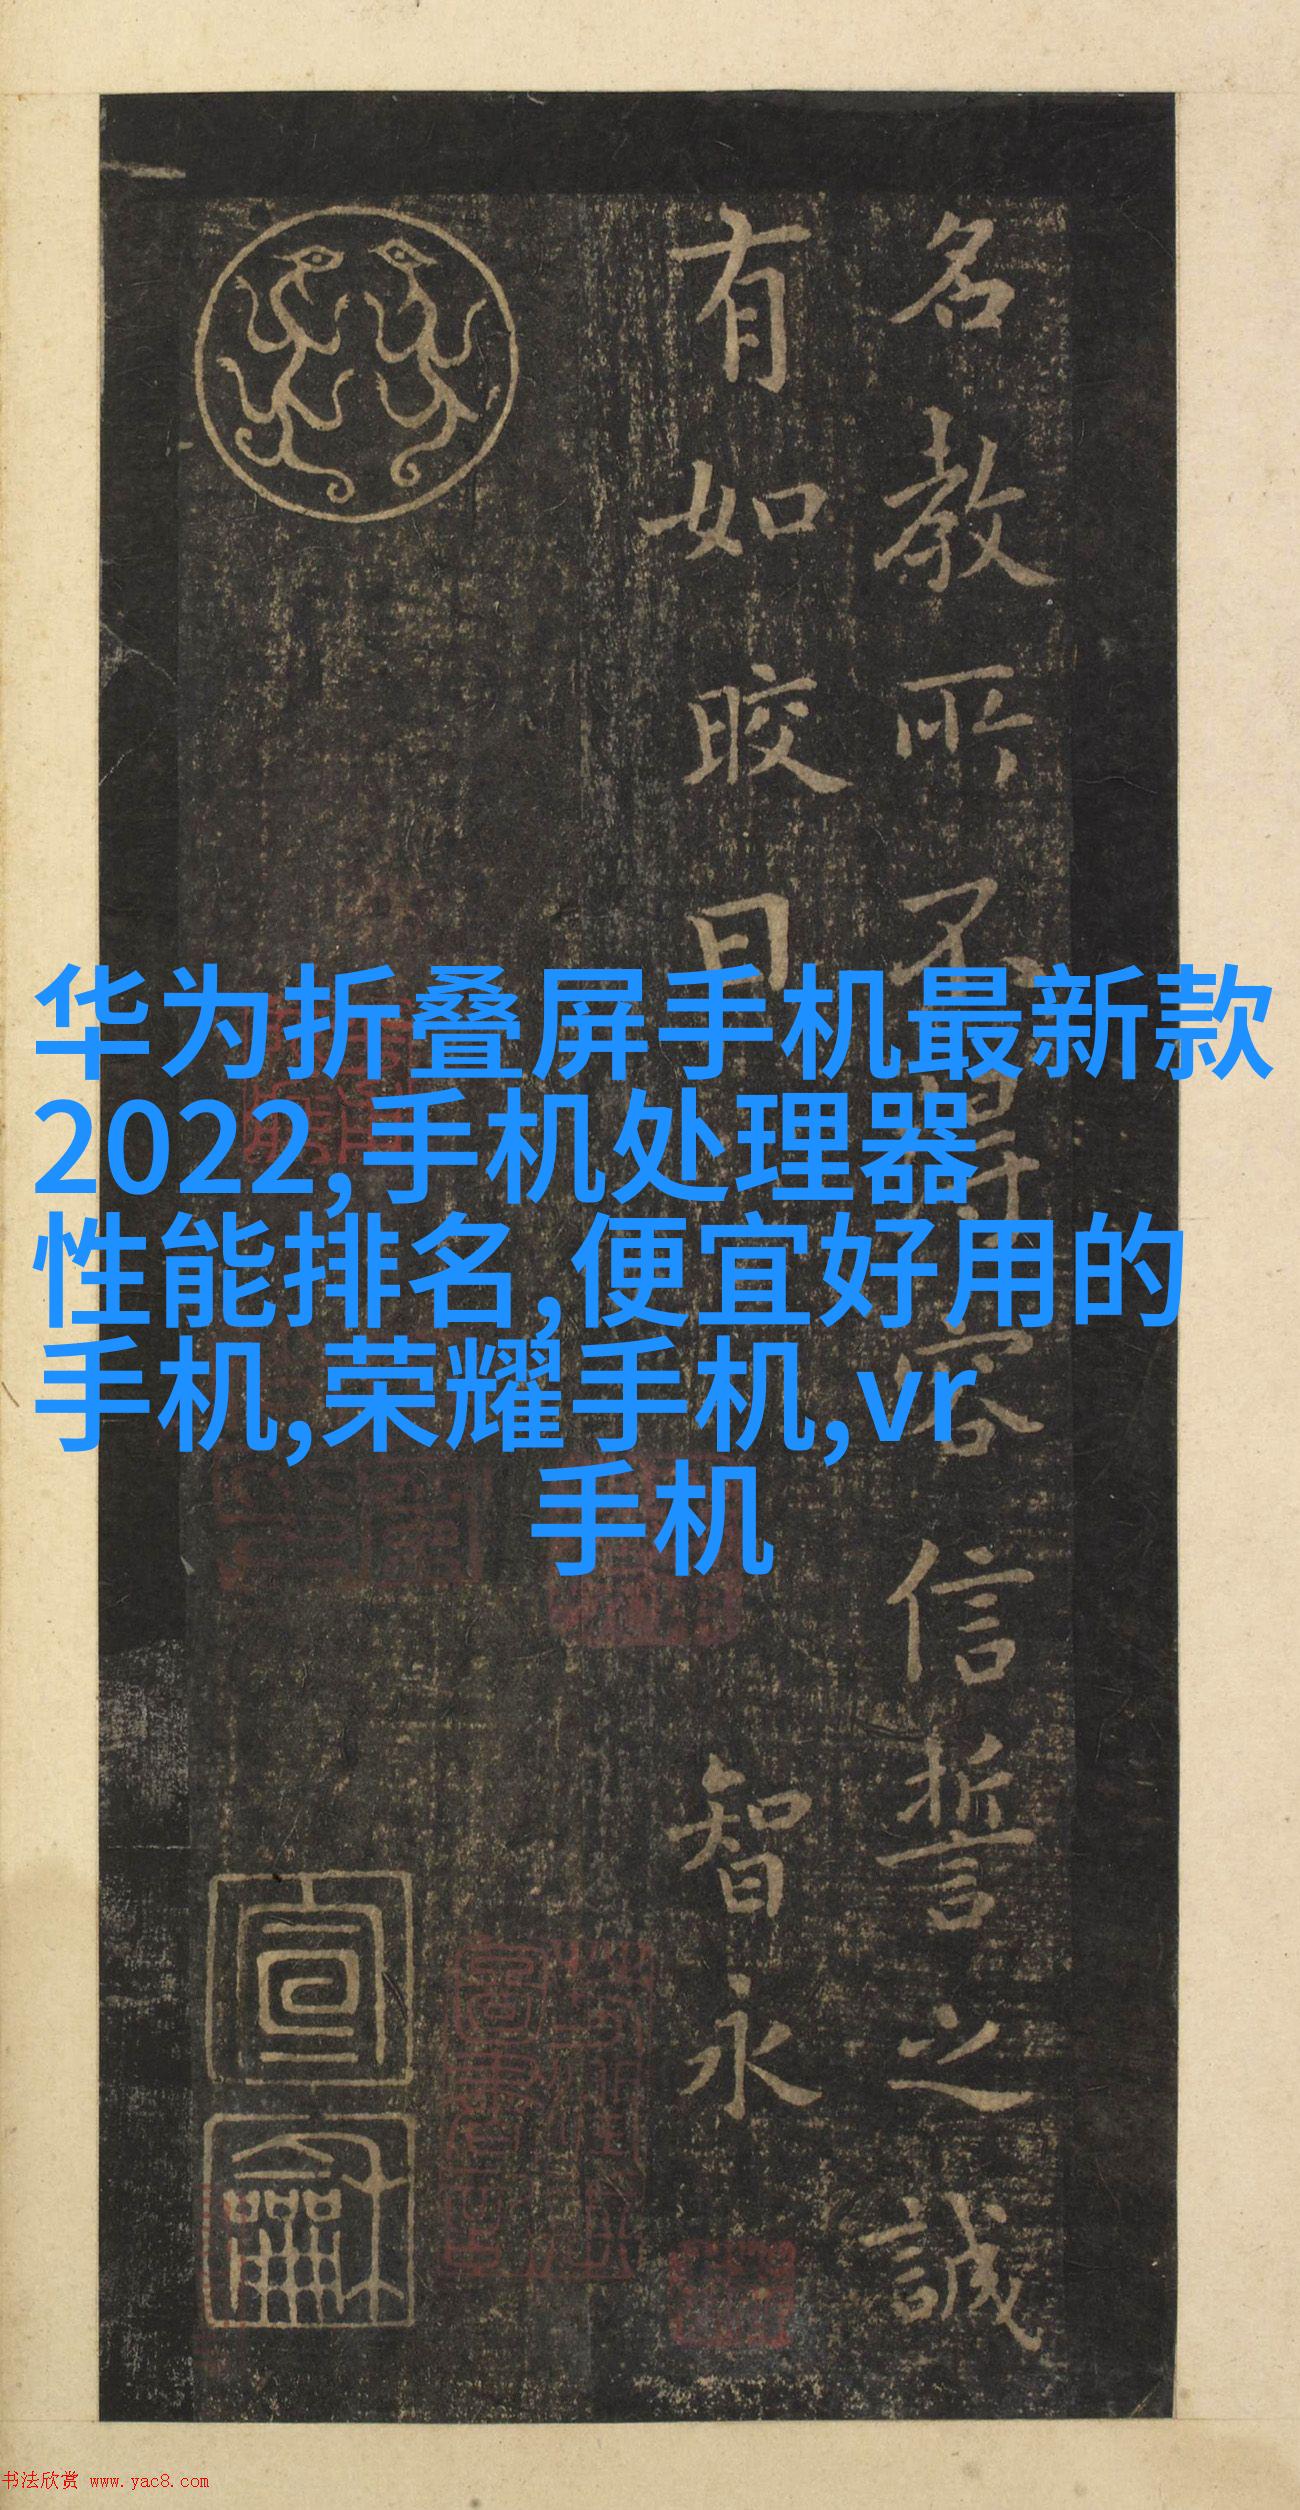 名教所不得容信誓之誠
有如晈日
智永
华为折叠屏手机最新款
2022,手机处理器
性能排名,便宜好用的
手机,荣耀手机,vr
手机
书法欣赏 www.yac8.com